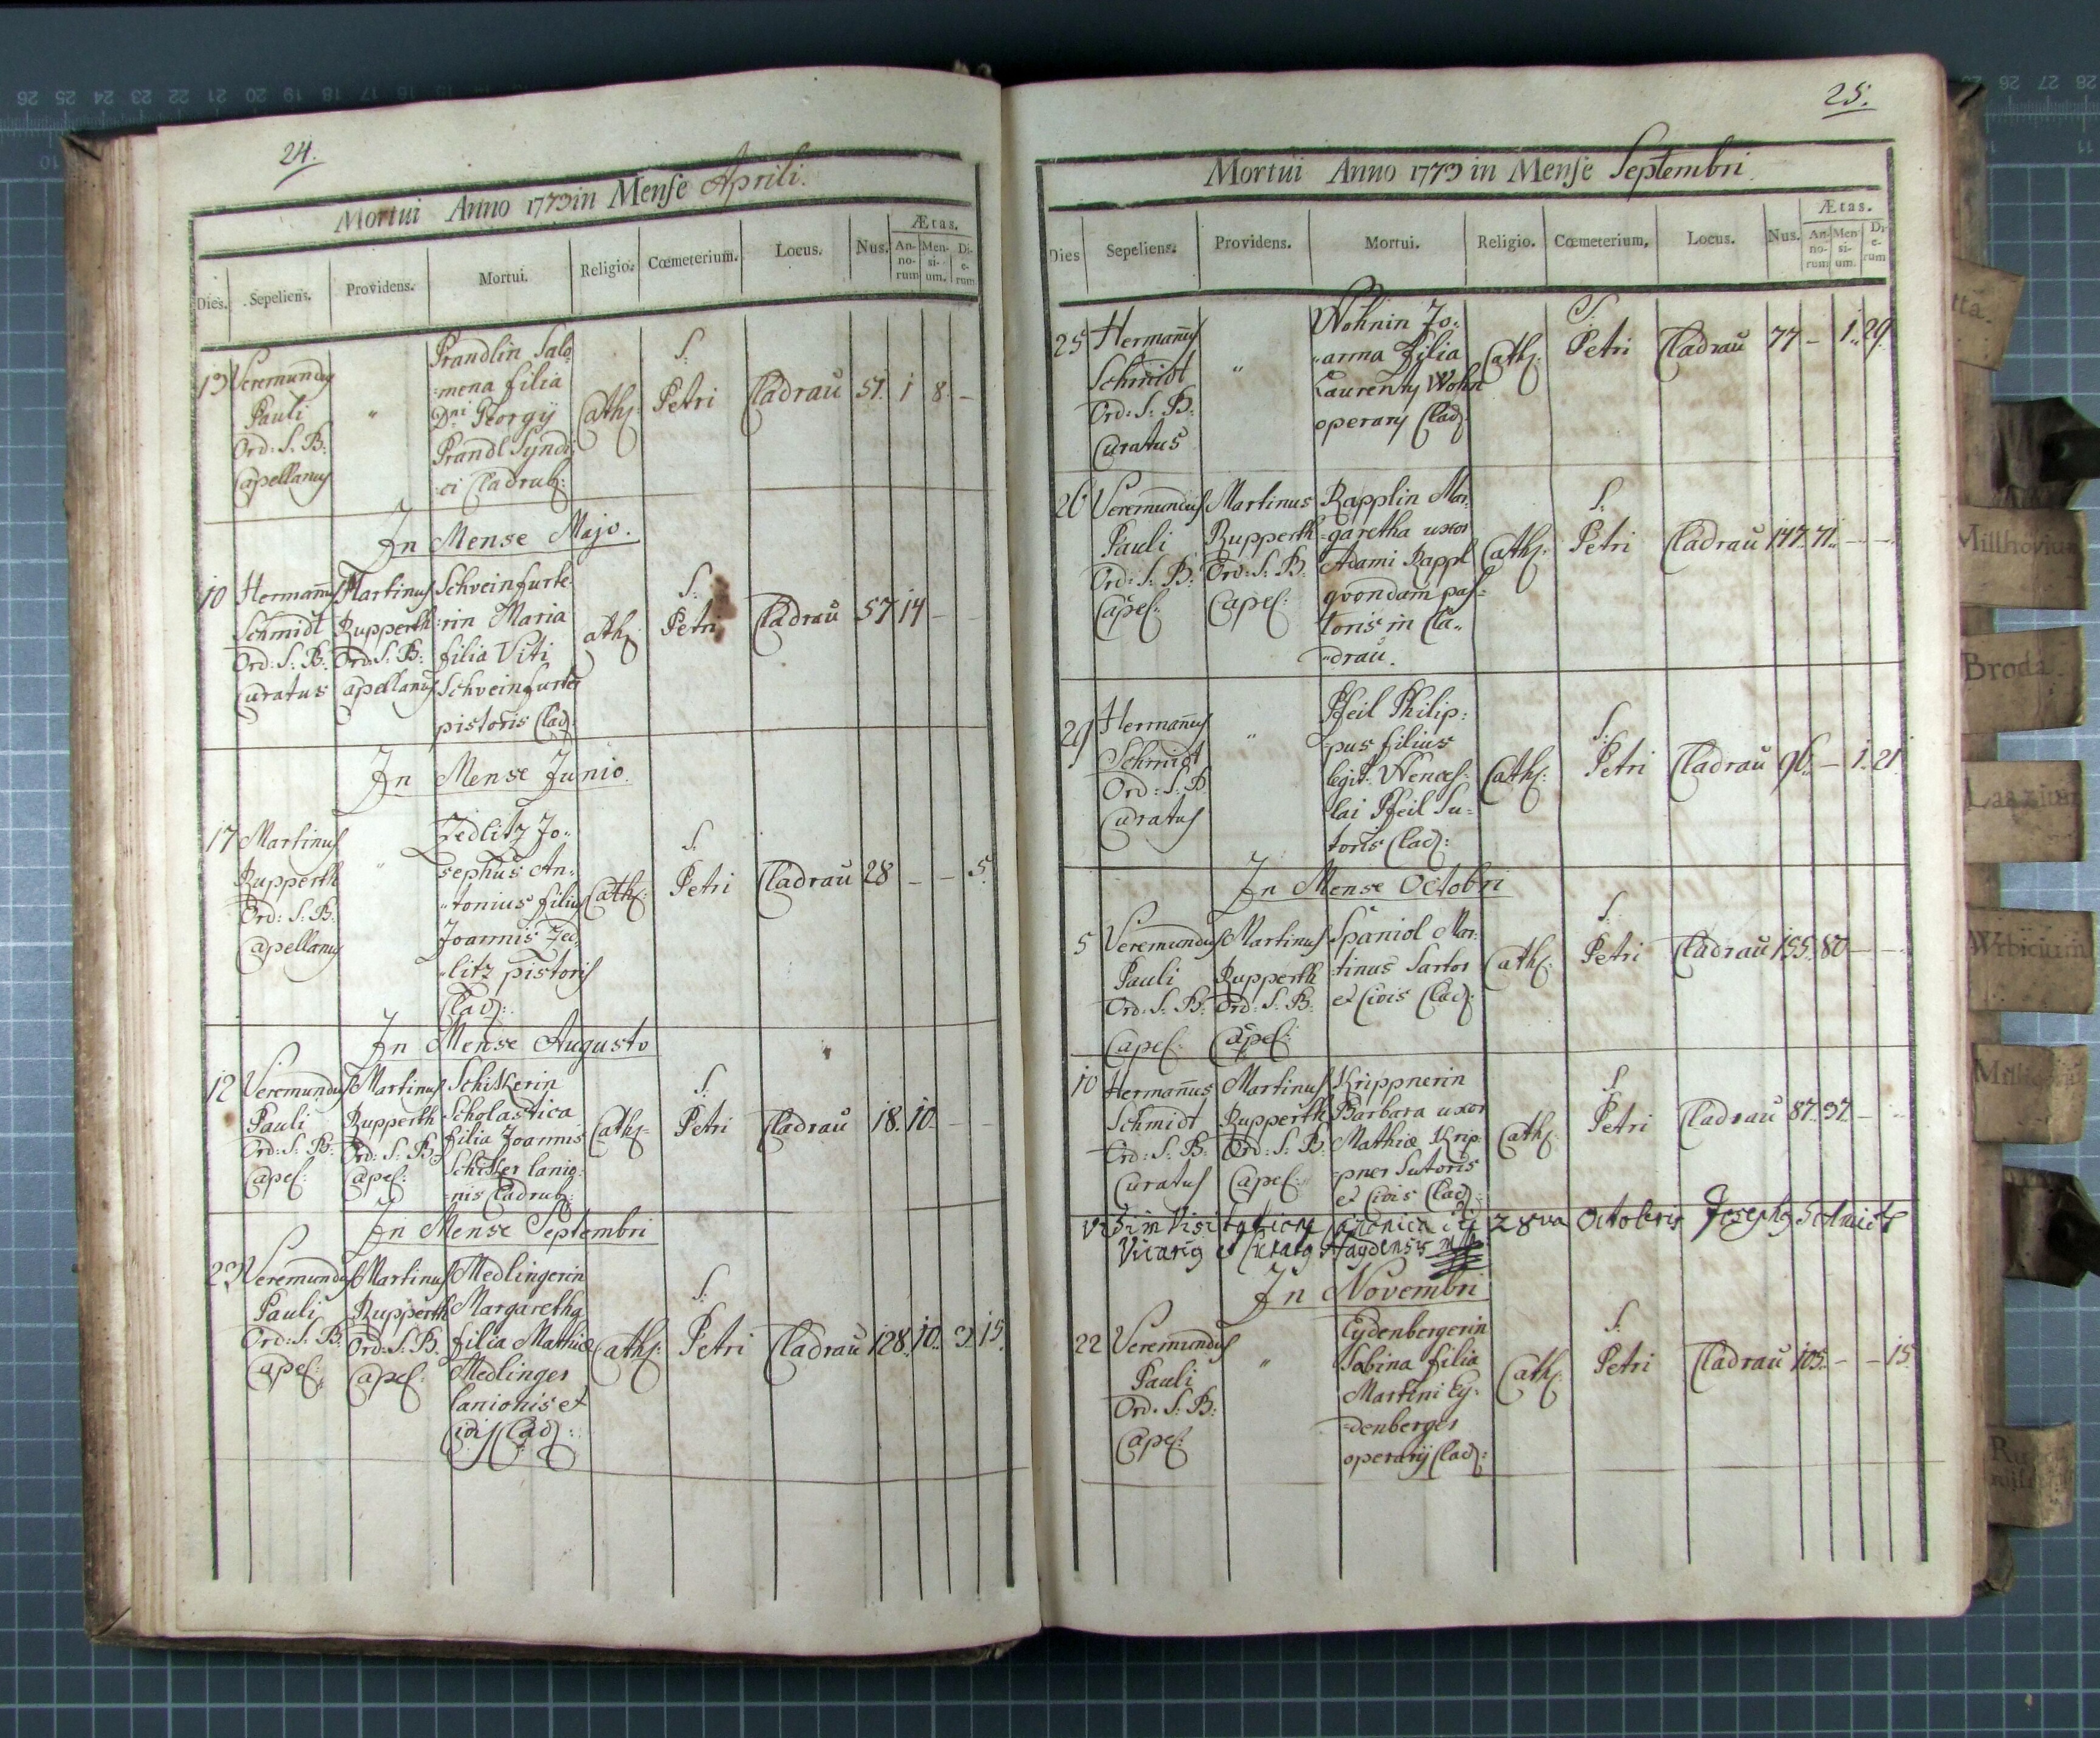 24.
Mortui Anno 1773 in Mense Aprili.
Dies. Sepeliens. Providens. Mortui. Religio. Cœmeterium. Locus. Nus. Ætas.
An-norum Men-si-um. Di-e-rum
13 Veremundus Pauli Ord: S: B: Capellanus
"
Prandlin Salo
=mena filia
Dni Georgÿ
Prandl Syndi
=ci Cladrub:
Cath: S: Petri Cladrau 51. 1 8. –
In Mense Majo.
10 Hermannus Schmidt Ord: S: B: Curatus
Martinus Rupperth Ord: S: B: Capellanus
Schveinfurte
=rin Maria
filia Viti
Schveinfurter
pistoris Clad:
Cath: S: Petri Cladrau 57 14 – –
In Mense Junio.
17 Martinus Rupperth Ord: S: B: Capellanus
"
Zedlitz Jo:
sephus An:
"tonius filius
Joannis Zed:
"litz pistoris
Clad:
Cath: S. Petri Cladrau 28 – – 5.
In Mense Augusto
12 Veremundus Pauli Ord: S: B: Capel:
Martinus Rupperth Ord: S: B: Capel:
Schiskerin
Scholastica
filia Joannis
Schisker lanio:
=nis Cladrub:
Cath: S. Petri Cladrau 18. 10. – –
In Mense Septembri
23 Veremundus Pauli Ord: S: B: Capel:
Martinus Rupperth Ord: S: B. Capel:
Medlingerin
Margaretha
filia Mathiæ
Medlinger
lanionis et
Civis Clad:
Cath: S: Petri Cladrau 128. 10. 3. 15.
25.
Mortui Anno 1773 in Mense Septembri.
Dies Sepeliens. Providens. Mortui. Religio. Cœmeterium. Locus. Nus. Ætas.
An-no-rum Men-si-um. Di-e-rum
25 Hermannus Schmidt Ord: S: B: Curatus
"
Wohnin Jo:
"anna filia
Laurenty Wohn
operary Clad:
Cath: S. Petri Cladrau 77 – 1. 29.
26 Veremundus Pauli Ord: S: B: Capel:
Martinus Rupperth Ord: S: B: Capel:
Rapplin Mar:
=garetha uxor
Adami Rappl
qvondam pas=
toris in Cla"
"drau.
Cath: S. Petri Cladrau 147. 71. – –
29 Hermannus Schmidt Ord: S: B Curatus
"
Pfeil Philip:
=pus filius
legit: Wences:
lai Pfeil Su=
toris Clad:
Cath: S: Petri Cladrau 96. – 1. 21.
In Mense Octobri
5 Veremundus Pauli Ord: S: B: Capel:
Martinus Rupperth Ord: S: B: Capel:
Spaniol Mar:
=tinus Sartor
et Civis Clad:
Cath: S. Petri Cladrau 155. 80 – –
10 Hermannus Schmidt Ord: S: B: Curatus
Martinus Rupperth Ord: S: B. Capel:
Krippnerin
Barbara uxor
Mathiæ Krip=
=pner Sutoris
et Civis Clad:
Cath: S. Petri Cladrau 87. 37. – –
Visi in Visitatione Canonica 28va Octobris Josephg Schmidt
Vicarig et Haydensis
In Novembri
22 Veremundus Pauli Ord. S: B: Capel:
"
Eydenbergerin
Sabina filia
Martini Ey=
=denberger
operarÿ Clad:
Cath: S: Petri Cladrau 105. – – 15.
Millhovium
Broda.